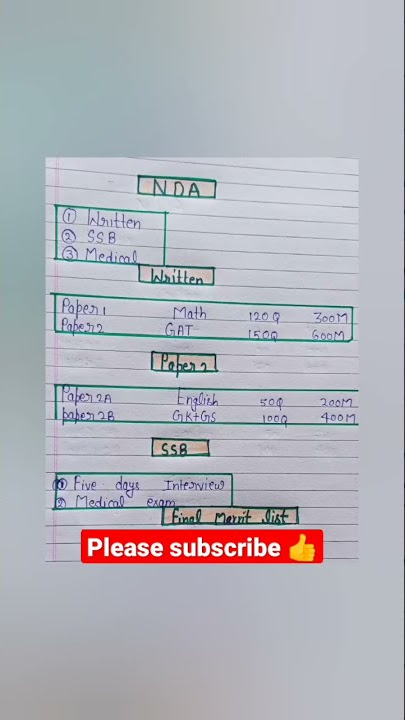 NDA
① Written
② SSB
③ Medical
Written
Paper 1 Math 120Q 300M
Paper 2 GAT 150Q 600M
Paper 2
Paper 2A English 50Q 200M
paper 2B GK+GS 100Q 400M
SSB
① Five days Interview
② Medical exam
Final Merrit list
Please subscribe 👍